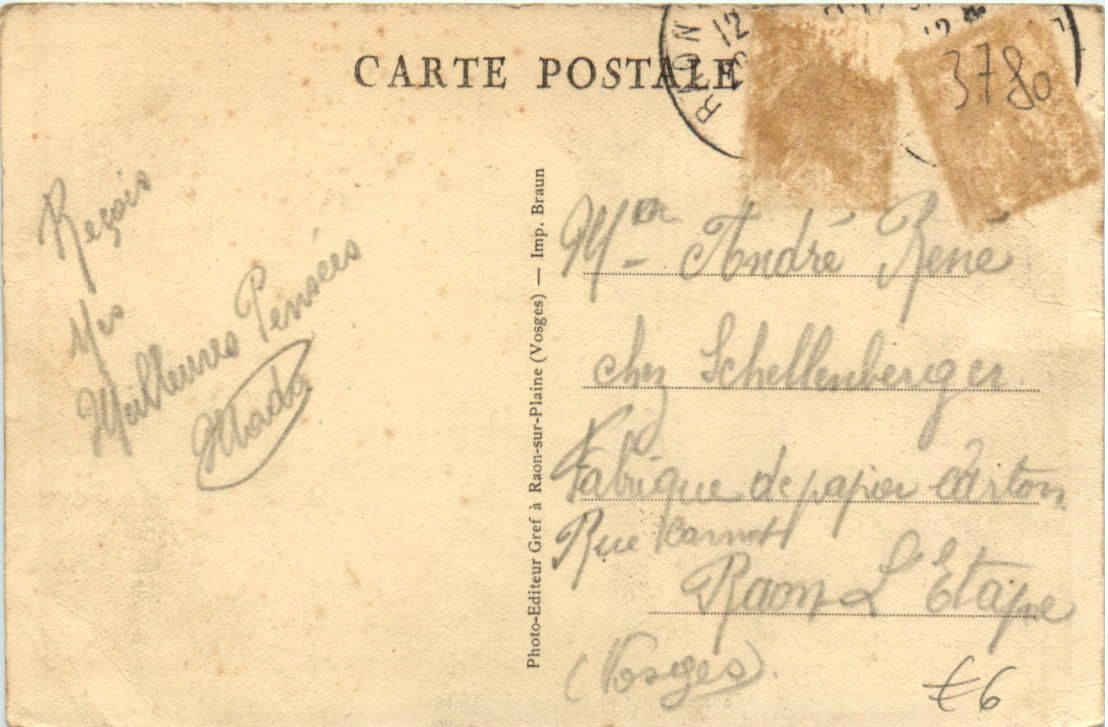 CARTE POSTALE
RAON
12
12
3780
Reçois
Mes
Meilleures Pensées
Mado
Photo-Editeur Gref à Raon-sur-Plaine (Vosges) — Imp. Braun
André René
chez Schellenberger
Fabrique de papier carton
Rue Carnot
Raon L'Etape
(Vosges).
€6